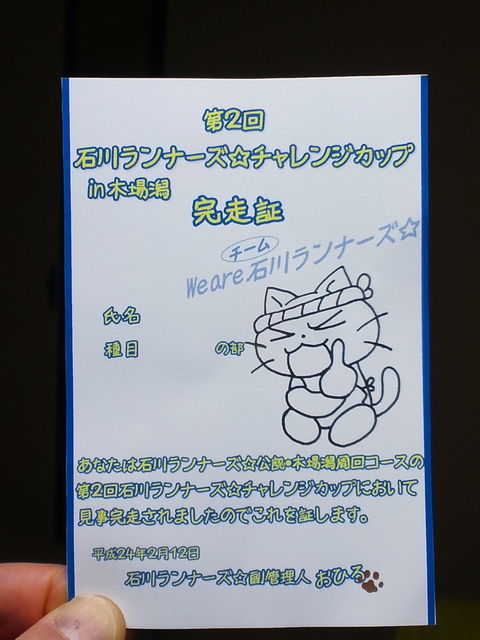 第2回
石川ランナーズ☆チャレンジカップ
in木場潟
完走証
チーム
Weare石川ランナーズ☆
氏名
種目 の部
あなたは石川ランナーズ☆公認・木場潟周回コースの
第2回石川ランナーズ☆チャレンジカップにおいて
見事完走されましたのでこれを証します。
平成24年2月12日
石川ランナーズ☆副管理人 おひる